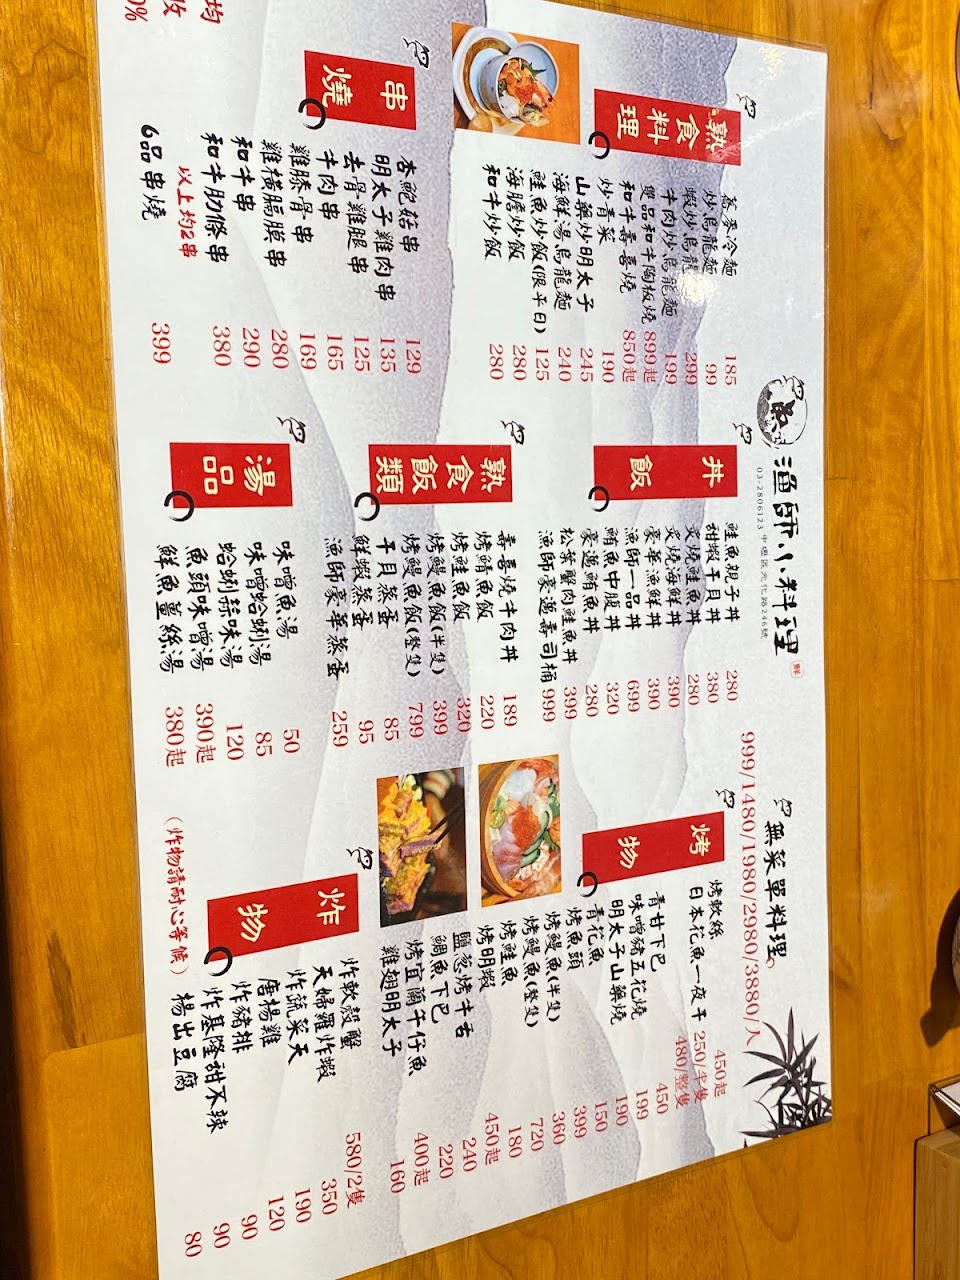 漁師小料理
鮮
03-2806123 中壢區元化路246號
無菜單料理
999/1480/1980/2980/3880/人
熟食料理
蕎麥冷麵 185
炒烏龍麵 99
蝦炒烏龍麵 299
牛肉炒烏龍麵 199
雙品和牛陶板燒 899起
和牛壽喜燒 850起
炒青菜 190
山藥炒明太子 245
海鮮湯烏龍麵 240
鮭魚炒飯(限平日) 125
海膽炒飯 280
和牛炒飯 280
丼飯
鮭魚親子丼 280
甜蝦干貝丼 380
炙燒鮭魚丼 280
炙燒海鮮丼 390
豪華漁鮮丼 390
漁師一品丼 699
鮪魚中腹丼 320
豪邁鮪魚丼 280
松葉蟹肉鮭魚丼 399
漁師豪邁壽司桶 999
烤物
烤軟絲 450起
日本花魚一夜干 250/半隻
480/整隻
青甘下巴 450
味噌豬五花燒 199
明太子山藥燒 190
青花魚 150
烤魚頭 399
烤鰻魚(半隻) 360
烤鰻魚(整隻) 720
烤鮭魚 180
烤明蝦 450起
鹽蔥烤牛舌 240
鯛魚下巴 220
烤宜蘭午仔魚 400起
雞翅明太子 160
串燒
杏鮑菇串 129
明太子雞肉串 135
去骨雞腿串 125
牛肉串 165
雞膝骨串 169
雞橫膈膜串 280
和牛串 290
和牛肋條串 380
以上均2串
6品串燒 399
熟食飯類
壽喜燒牛肉丼 189
烤鯖魚飯 220
烤鮭魚飯 320
烤鰻魚飯(半隻) 399
烤鰻魚飯(整隻) 799
干貝蒸蛋 85
鮮蝦蒸蛋 95
漁師豪華蒸蛋 259
湯品
味噌魚湯 50
味噌蛤蜊湯 85
蛤蜊絲味湯 120
魚頭味噌湯 390起
鮮魚薑絲湯 380起
炸物
炸軟殼蟹 580/2隻
天婦羅炸蝦 350
炸蔬菜天 190
唐揚雞 120
炸豬排 90
炸基隆甜不辣 90
揚出豆腐 80
(炸物請耐心等候)
均
收
0%